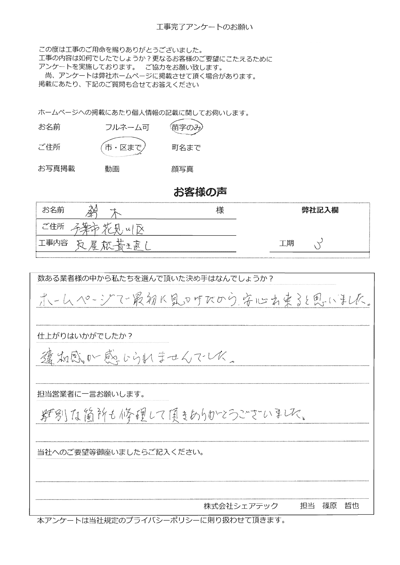 工事完了アンケートのお願い
この度は工事のご用命を賜りありがとうございました。
工事の内容は如何でしたでしょうか？更なるお客様のご要望にこたえるために
アンケートを実施しております。 ご協力をお願い致します。
尚、アンケートは弊社ホームページに掲載させて頂く場合があります。
掲載にあたり、下記のご質問も合せてお答えください
ホームページへの掲載にあたり個人情報の記載に関してお伺いします。
お名前 フルネーム可 苗字のみ
ご住所 市・区まで 町名まで
お写真掲載 動画 顔写真
お客様の声
お名前 鈴木 様 弊社記入欄
ご住所 千葉市花見川区
工事内容 瓦屋根葺き直し 工期 3
数ある業者様の中から私たちを選んで頂いた決め手はなんでしょうか？
ホームページで最初に見つけたから安心出来ると思いました。
仕上がりはいかがでしたか？
違和感が感じられませんでした。
担当営業者に一言お願いします。
特別な箇所も修理して頂きありがとうございました。
当社へのご要望等御座いましたらご記入ください。
株式会社シェアテック 担当 篠原 哲也
本アンケートは当社規定のプライバシーポリシーに則り扱わせて頂きます。